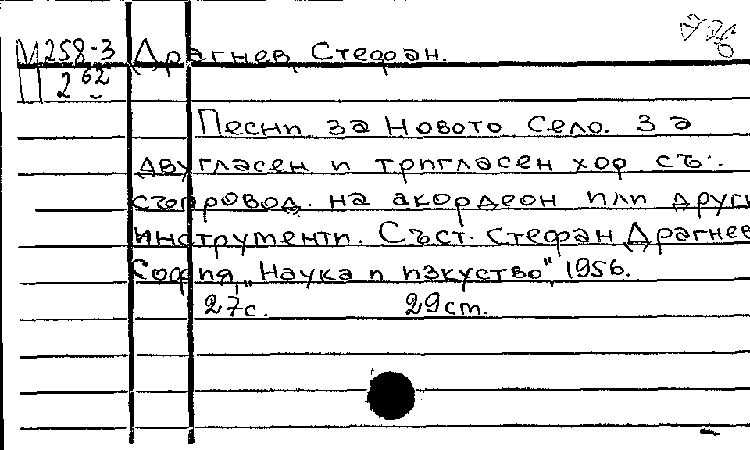 М 258-3 Драгнев, Стефан.
П 2 62
Песни за Новото Село. За
двугласен и тригласен хор съ:.
съпровод. на акордеон или други
инструменти. Съст. Стефан Драгнев
София, "Наука и изкуство", 1956.
27с. 29ст.